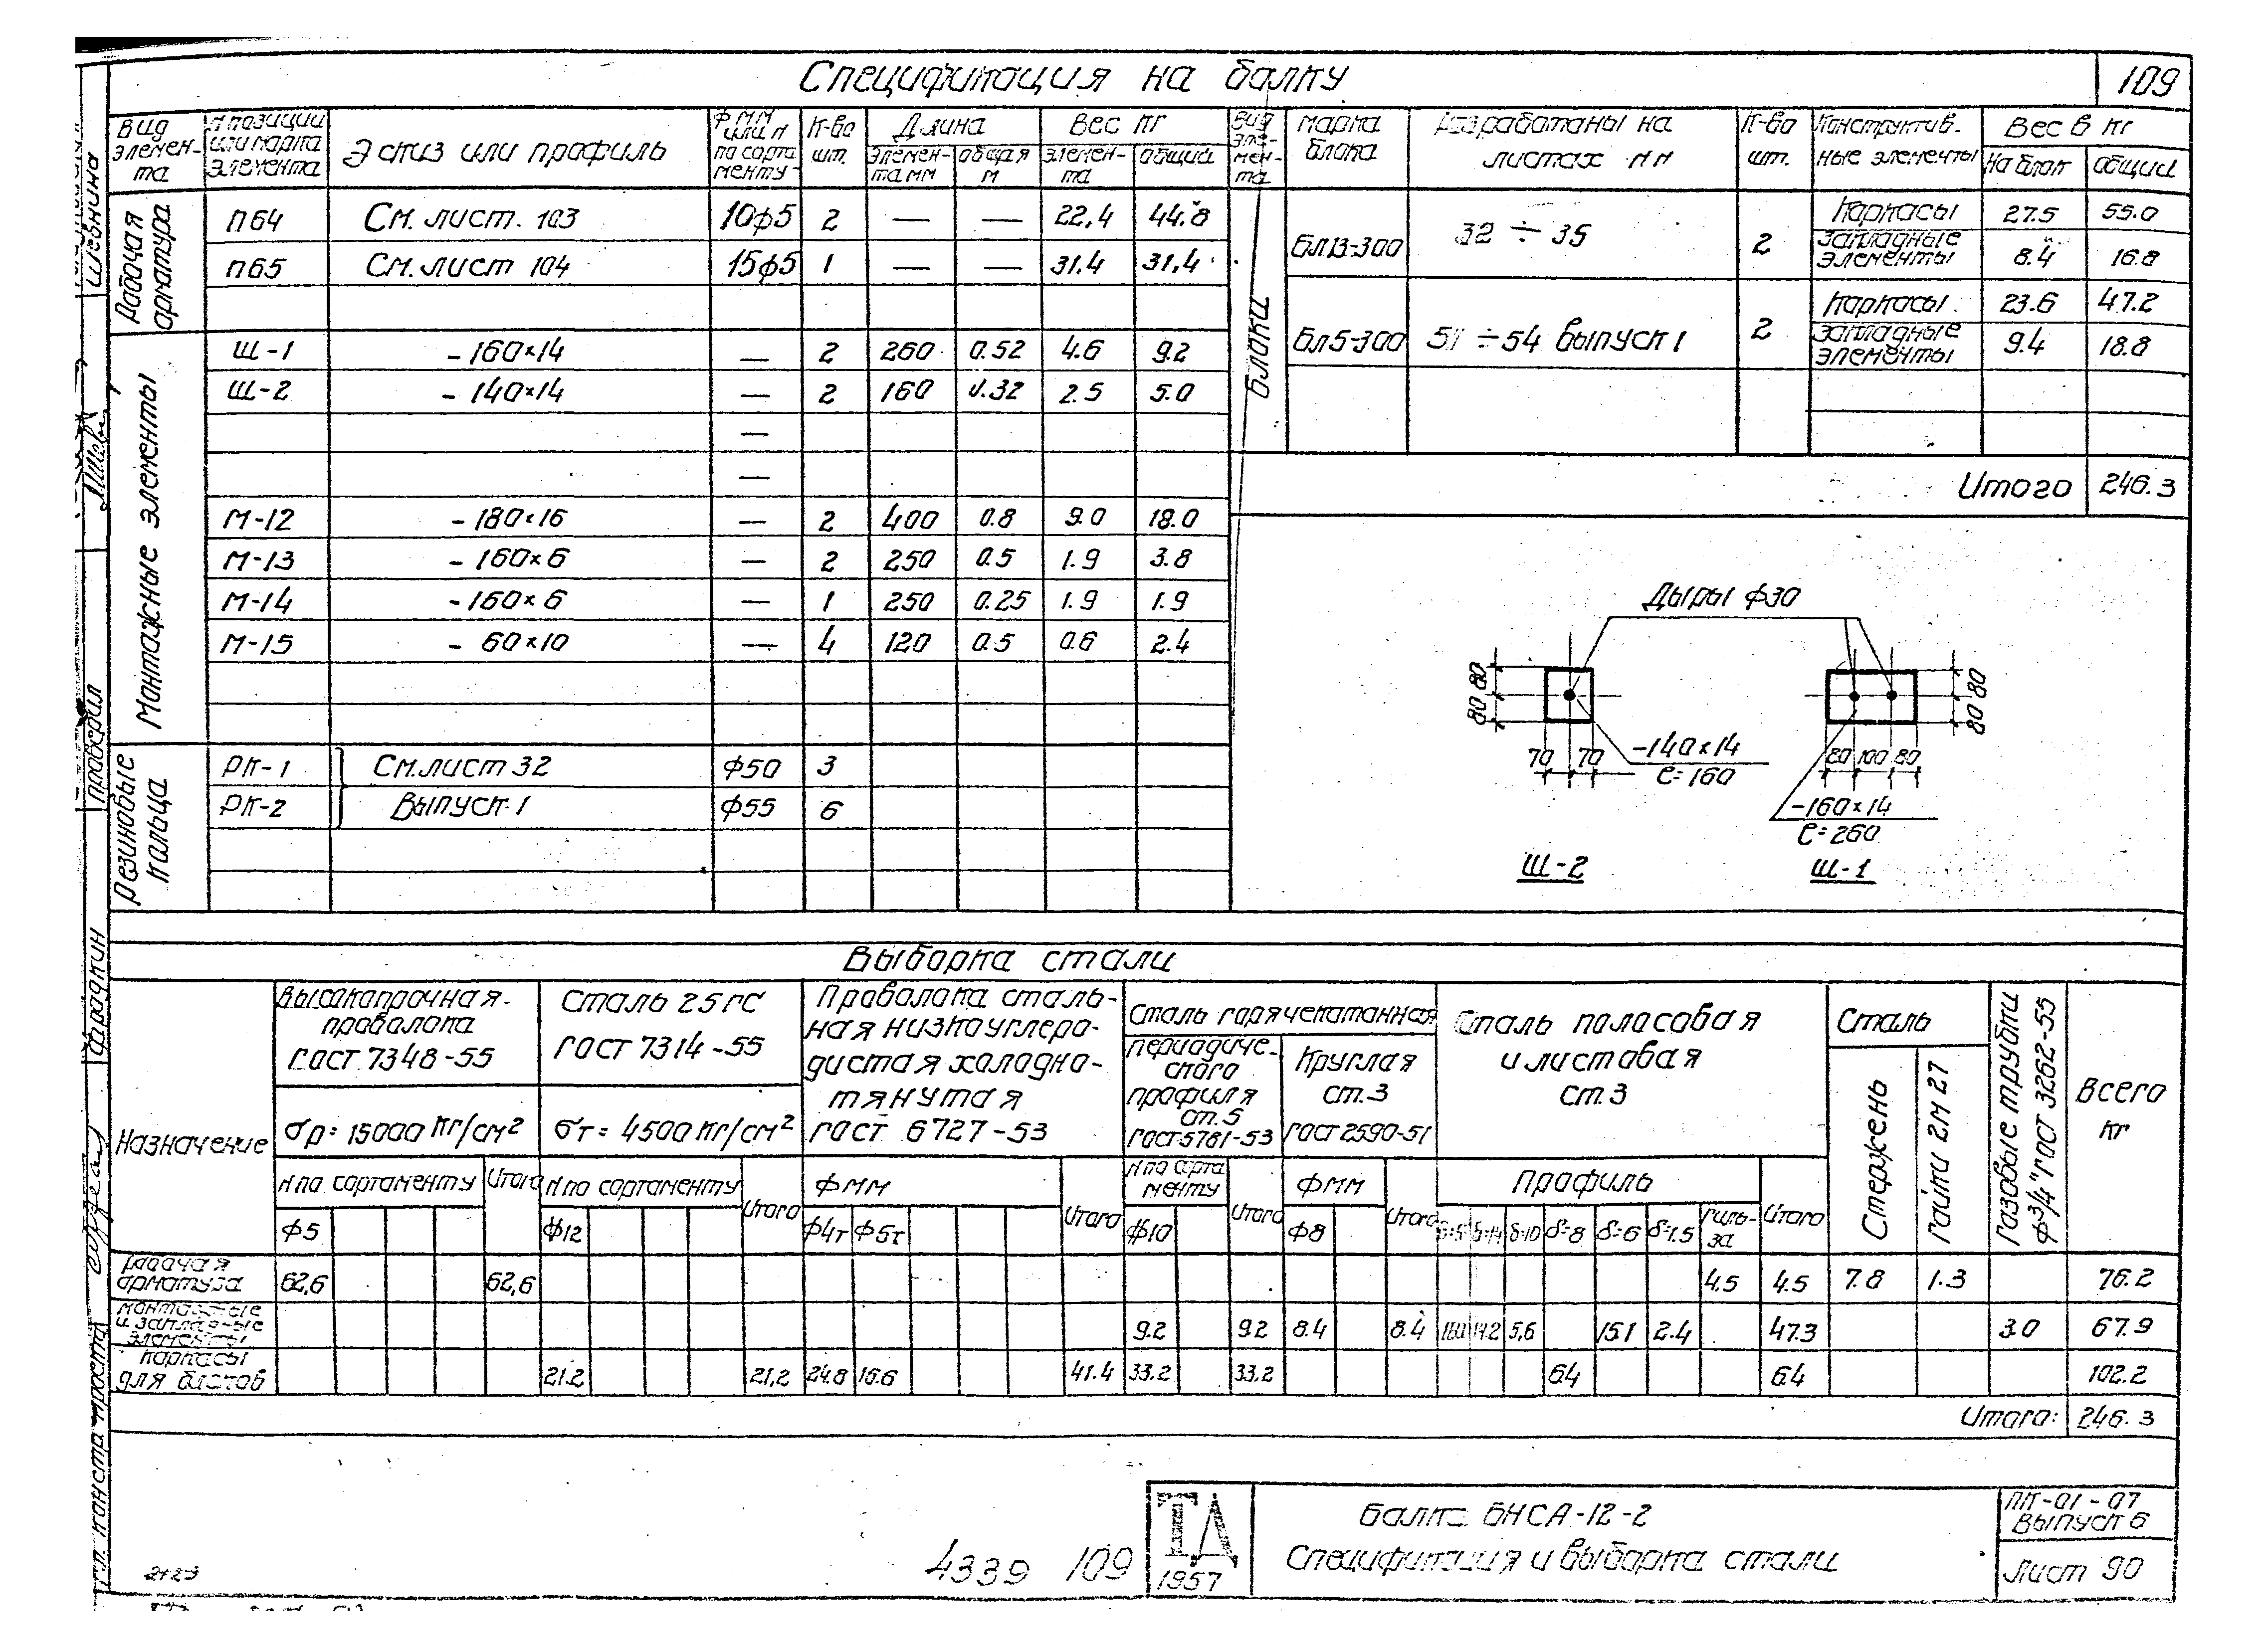 Спецификация на балку
109
Вид элемен-та
N позиции или марка элемента
Эскиз или профиль
Ф мм или N по сорта менту
К-во шт.
Длина
элемен-та мм
общая м
Вес кг
элемен-та
общий
Вид эле-мен-та
марка блока
Разработаны на листах NN
К-во шт.
Конструктив-ные элементы
Вес в кг
На блок
общий
Рабочая арматура
П64 См. лист. 103 10ф5 2 — — 22,4 44.8
П65 См. лист 104 15ф5 1 — — 31.4 31,4
Монтажные элементы
Ш-1 -160×14 — 2 260 0.52 4.6 9.2
Ш-2 -140×14 — 2 160 0.32 2.5 5.0
—
—
М-12 -180×16 — 2 400 0.8 9.0 18.0
М-13 -160×6 — 2 250 0.5 1.9 3.8
М-14 -160×6 — 1 250 0.25 1.9 1.9
М-15 - 60×10 — 4 120 0.5 0.6 2.4
Резиновые кольца
РК-1 См.лист 32 ф50 3
РК-2 Выпуск 1 ф55 6
Блоки
Бл13-300 32 ÷ 35 2 Каркасы 27.5 55.0
закладные элементы 8.4 16.8
Бл5-300 51 ÷54 выпуск 1 2 Каркасы 23.6 47.2
закладные элементы 9.4 18.8
Итого 246.3
Дыры ф30
80 80
70 70
-140×14
ℓ=160
Ш-2
80 80
80 100 80
-160×14
ℓ=260
Ш-1
Выборка стали
Назначение
Высокопрочная проволока ГОСТ 7348-55
σр= 15000 кг/см²
N по сортаменту
Итого
ф5
Сталь 25ГС
ГОСТ 7314-55
σт= 4500 кг/см²
N по сортаменту
Итого
ф12
Проволока сталь-ная низкоуглеро-дистая холодно-тянутая ГОСТ 6727-53
Фмм
Итого
ф4т ф5т
Сталь горячекатанная
периодиче-ского профиля ст.5 ГОСТ 5781-53
N по сорта менту
Итого
ф10
Круглая ст.3 ГОСТ 2590-51
Фмм
Итого
ф8
Сталь полосовая и листовая ст.3
Профиль
δ=14 δ=10 δ=8 δ=6 δ=1.5 гиль-за Итого
Сталь
Стержень
Гайки 2М 27
Газовые трубки ф3/4" ГОСТ 3262-55
Всего кг
рабочая арматура 62,6 62,6 4.5 4.5 7.8 1.3 76.2
монтажные и закладные элементы 9.2 9.2 8.4 8.4 14.2 5,6 15.1 2.4 47.3 3.0 67.9
каркасы для блоков 21.2 21,2 24.8 16.6 41.4 33.2 33.2 6.4 6.4 102.2
Итого: 246.3
4339 109
ТД
1957
Балка БНСА-12-2
Спецификация и выборка стали
ПК-01-07
Выпуск 6
Лист 90
Шевнина
проверил
Фрадкин